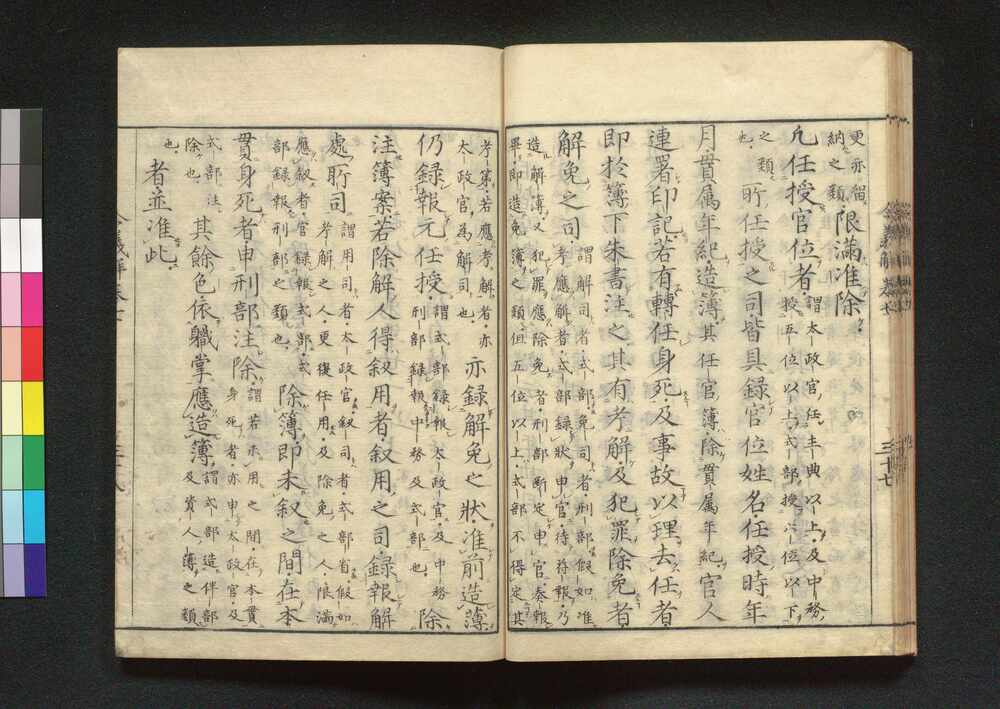 更亦留
納之類
限滿准除
凡任授官位者
謂太政官任主典以上及中務
授五位以上式部授六位以下
之類
也
所任授之司皆具録官位姓名任授時年
月貫属年紀造簿其任官簿除貫属年紀官人
連署印記若有轉任身死及事故以理去任者
即於簿下朱書注之其有考解及犯罪除免者
解免之司
謂解司者式部免司者刑部假如准
考應解者式部録狀申官待符報乃
造解簿又犯罪應除免者刑部断定申官奏報
畢即造免簿之類但五位以上式部不得定其
三十七
考第若應考解者亦
太政官為解司也
亦録解免之狀准前造簿
仍録報元任授
謂式部録報太政官及中務
刑部録報中務及式部也
除
注簿案若除解人得叙用者叙用之司録報解
處所司
謂用司者太政官叙司者式部省假如
考解之人更復任用及除免之人限満
應叙者官録報式部式
部録報刑部之類也
除簿即未叙之間在本
貫身死者申刑部注除
謂若未用之間在本貫
身死者亦申太政官及
式部注
除也
其餘色依軄掌應造簿
謂式部造伴部
及資人簿之類
也
者並准此